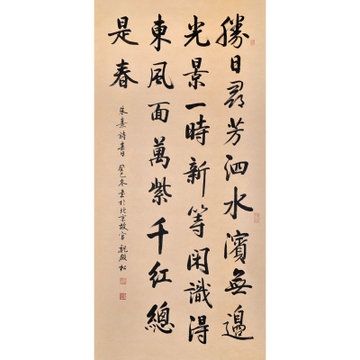 勝日尋芳泗水濱無邊
光景一時新等閑識得
東風面萬紫千紅總
是春
朱熹詩春日 癸巳冬書於北京故宮 魏殿松